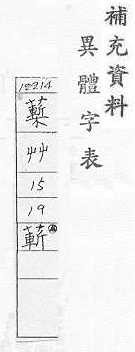 補充資料
異體字表
12214
艸
15
19
蔪